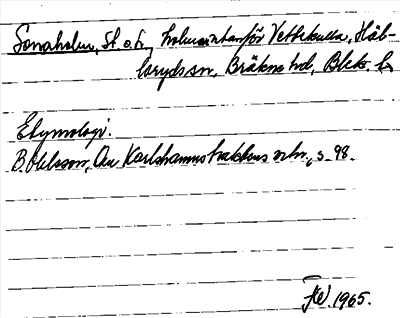 Sonaholm, St. o. L., holmar utanför Vettekulla, Häl-
laryds sn, Bräkne hd, Blek. l.
Etymologi.
B. Ohlsson, Om Karlshamnstraktens ortn., s. 98.
FW 1965.